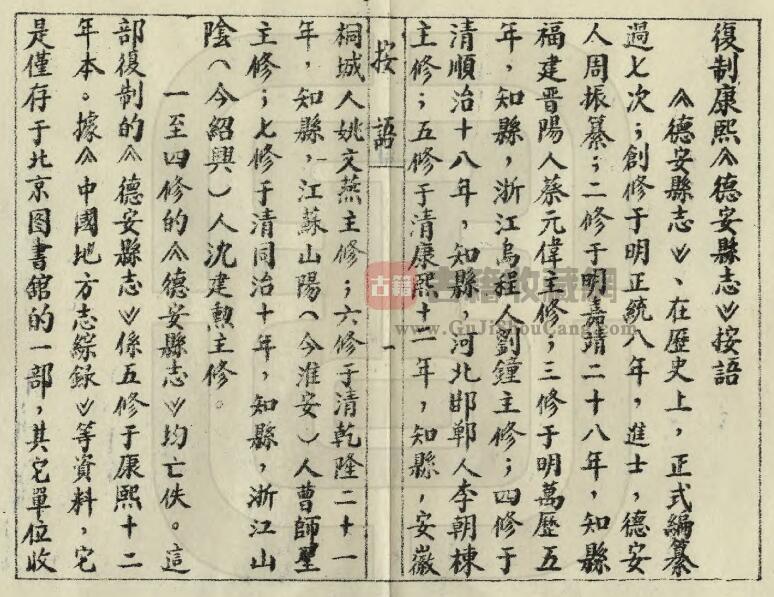 復制康熙《德安縣志》按語
《德安縣志》、在歷史上，正式編纂
過七次；創修于明正統八年，進士，德安
人周振纂；二修于明嘉靖二十八年，知縣
福建晋陽人蔡元偉主修；三修于明萬歷五
年，知縣，浙江烏程人劉鐘主修；四修于
清順治十八年，知縣，河北邯鄲人李朝棟
主修；五修于清康熙十一年，知縣，安徽
按語
一
桐城人姚文燕主修；六修于清乾隆二十一
年，知縣，江蘇山陽（今淮安）人曹師聖
主修；七修于清同治十年，知縣，浙江山
陰（今紹興）人沈建勳主修。
一至四修的《德安縣志》均亡佚。這
部復制的《德安縣志》係五修于康熙十二
年本。據《中國地方志綜録》等資料，它
是僅存于北京图書舘的一部，其它單位收
古籍
古籍收藏網
www.GuJiShouCang.com